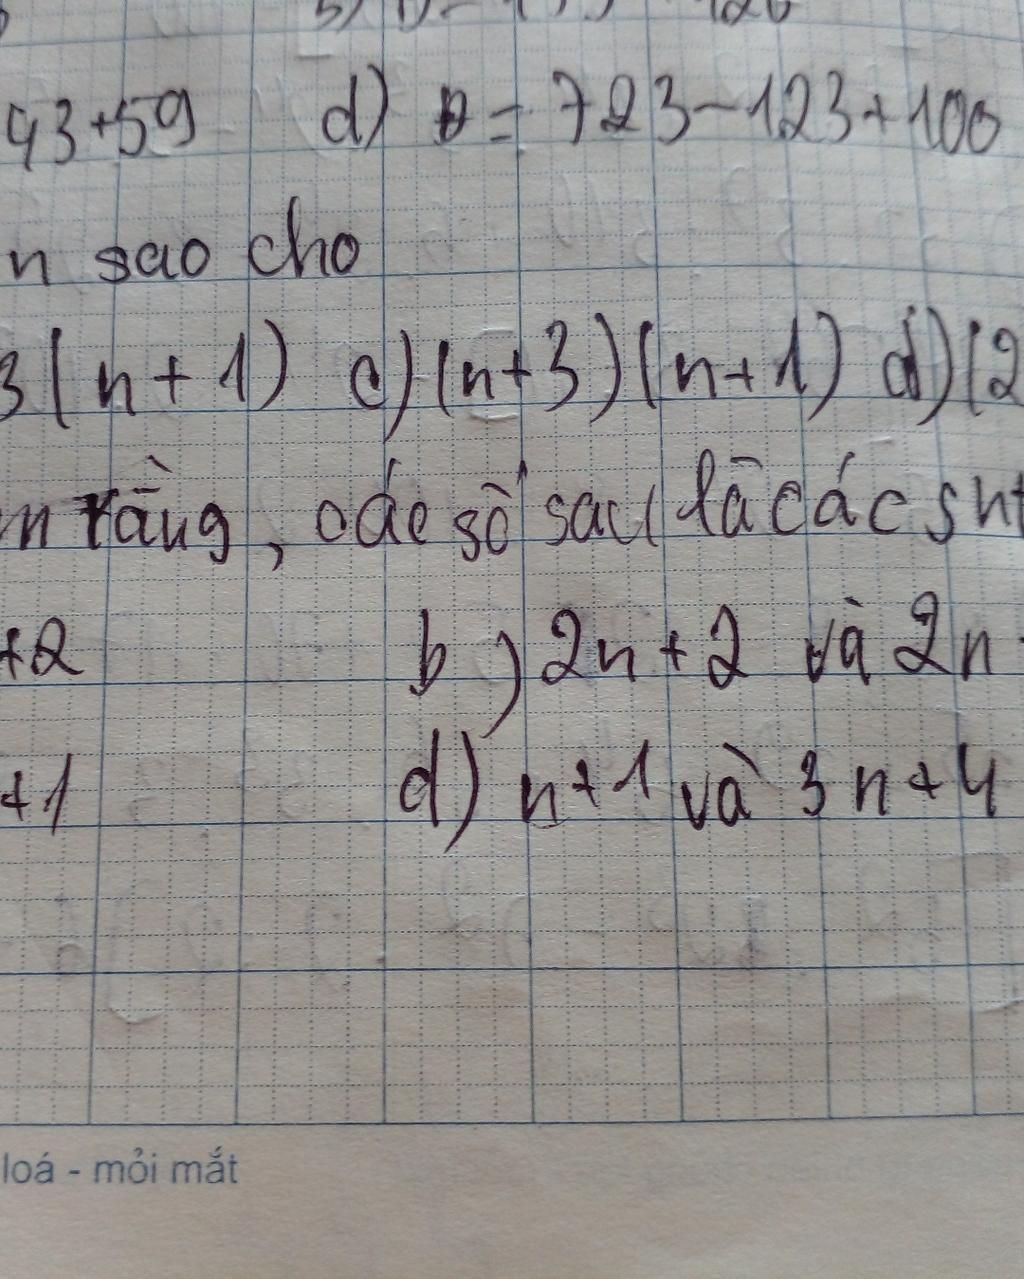 43+59 d) D = 723-123+100
n sao cho
3(n+1) c) (n+3)(n+1) d) (2
rằng, các số sau là các snt
+2 b) 2n+2 và 2n
+1 d) n+1 và 3n+4
loá - mỏi mắt